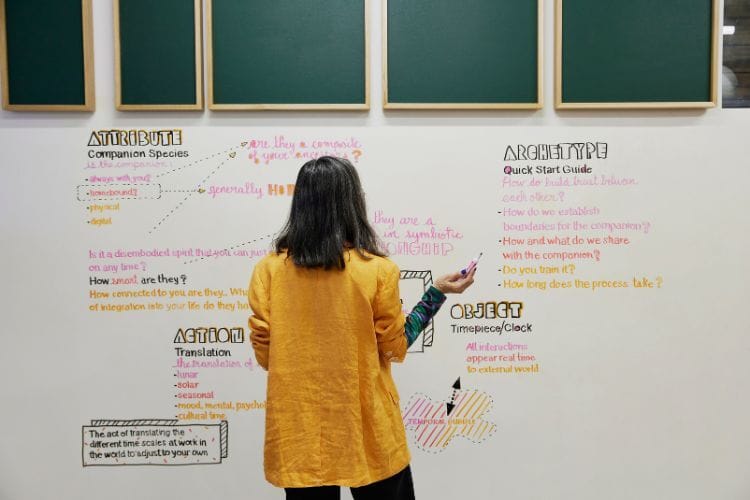 ATTRIBUTE
Companion Species
is the companion:
- always with you?
- homebound?
- physical
- digital
are they a composite
of your "ancestors"?
generally
they are a
in symbiotic
Is it a disembodied spirit that you can just
on any time?
How smart are they?
How connected to you are they.. What
of integration into your life do they
ACTION
Translation
the translation of
- lunar
- solar
- seasonal
- mood, mental,
- cultural time.
The act of translating the
different time scales at work in
the world to adjust to your own
ARCHETYPE
Quick Start Guide
How do build trust between
each other?
- How do we establish
boundaries for the companion?
- How and what do we share
with the companion?
- Do you train it?
- How long does the process take?
OBJECT
Timepiece/Clock
All interactions
appear real time
to external world
TEMPORAL